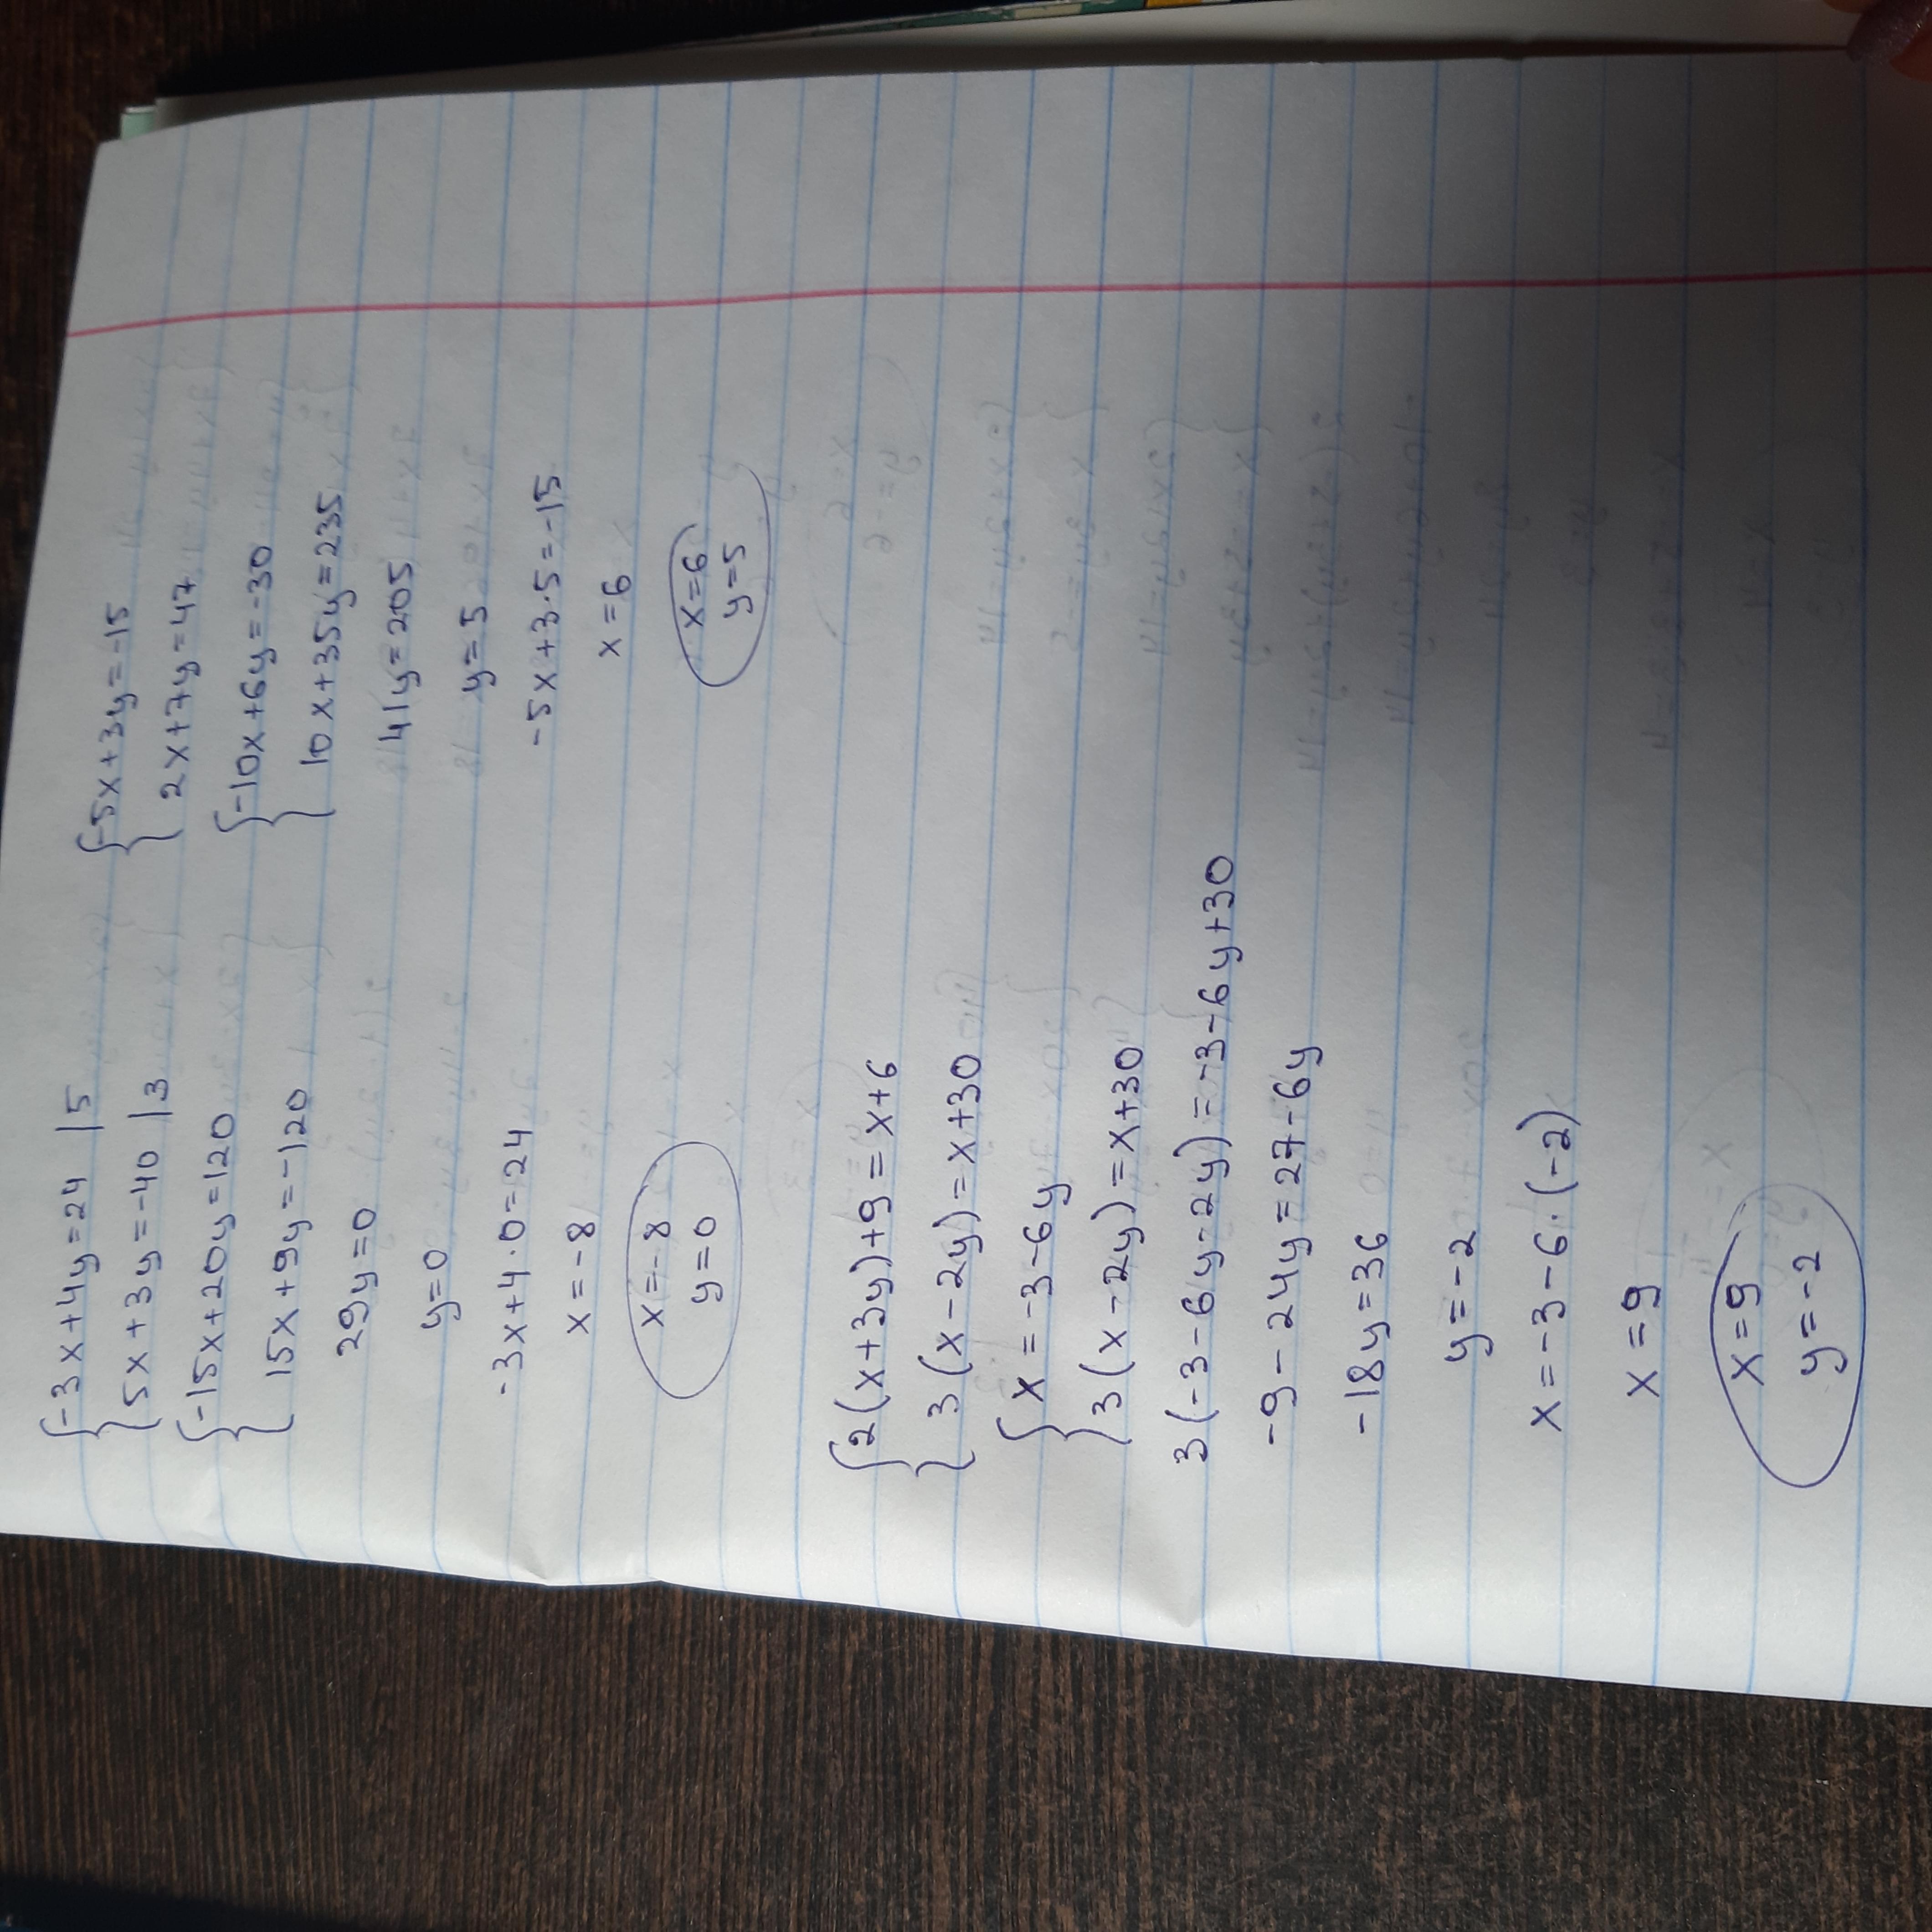 {-3x+4y=24 |5
{5x+3y=-40 |3
{-15x+20y=120
{15x+9y=-120
29y=0
y=0
-3x+4·0=24
x=-8
x=-8
y=0
{-5x+3y=-15
{2x+7y=47
{-10x+6y=-30
{10x+35y=235
41y=205
y=5
-5x+3·5=-15
x=6
x=6
y=5
{2(x+3y)+9=x+6
{3(x-2y)=x+30
{x=-3-6y
{3(x-2y)=x+30
3(-3-6y-2y)=-3-6y+30
-9-24y=27-6y
-18y=36
y=-2
x=-3-6·(-2)
x=9
x=9
y=-2